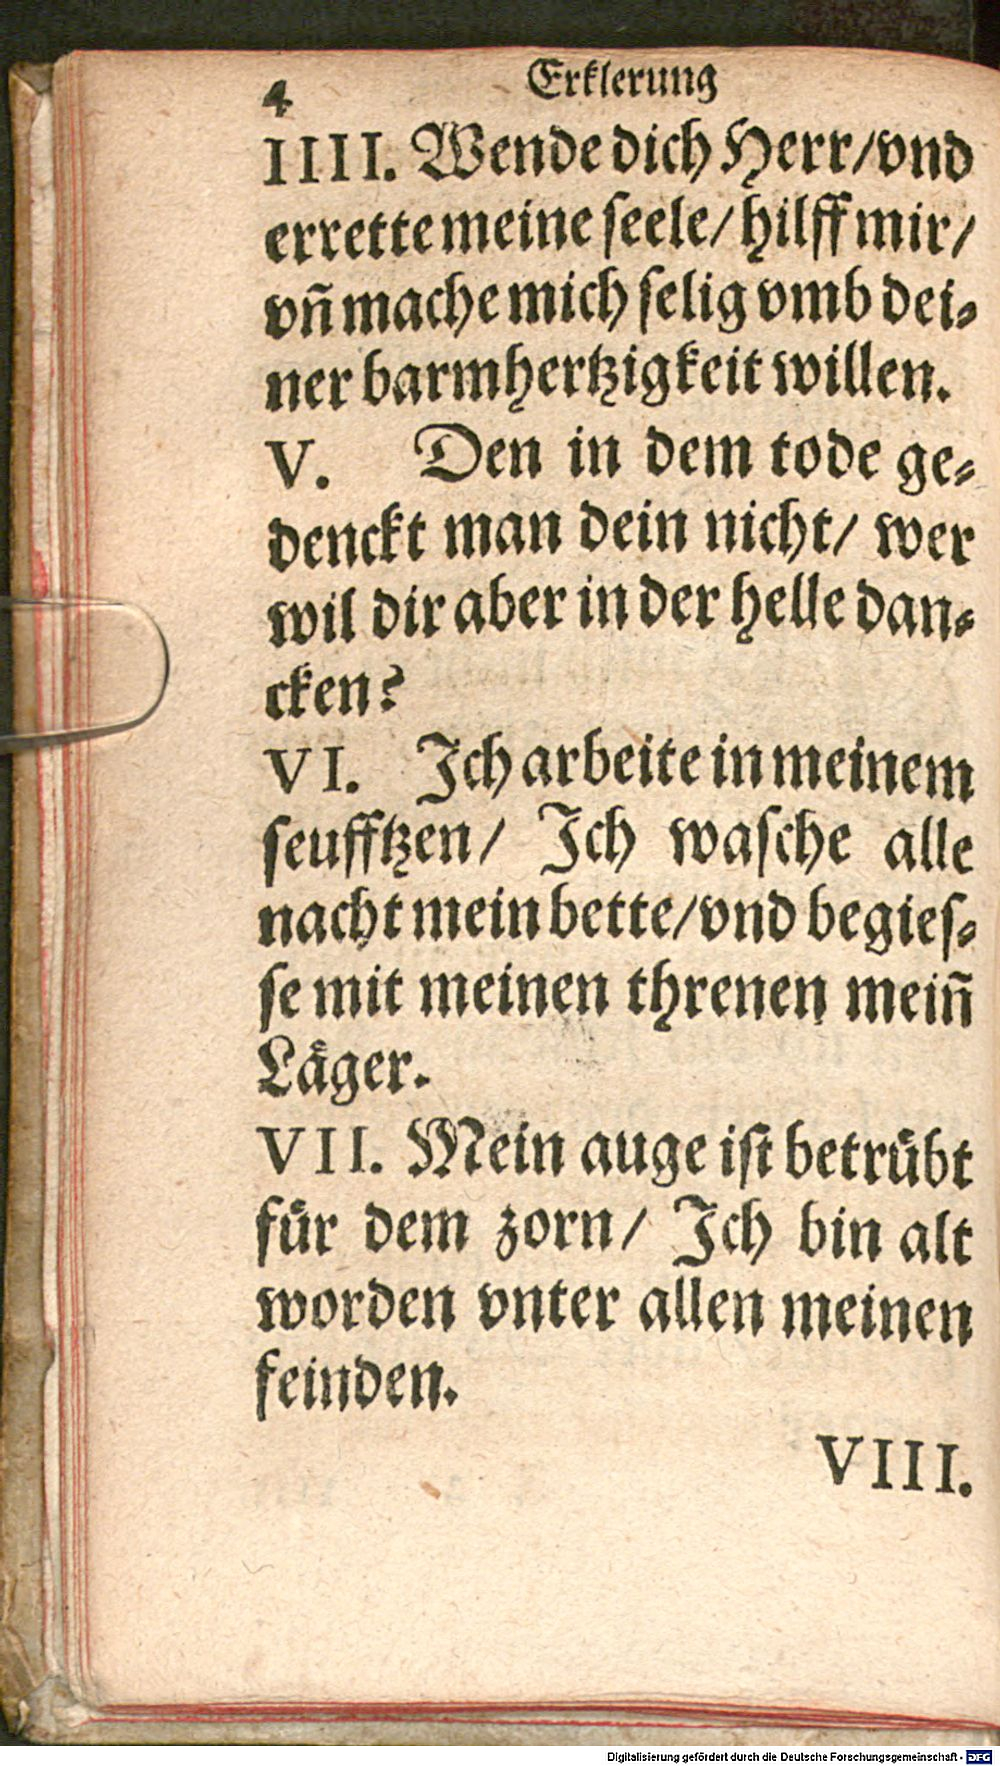 4 Erklerung
IIII. Wende dich Herr/vnd
errette meine seele/ hilff mir/
vñ mache mich selig vmb dei-
ner barmhertzigkeit willen.
V. Den in dem tode ge-
denckt man dein nicht/ wer
wil dir aber in der helle dan-
cken?
VI. Ich arbeite in meinem
seufftzen/ Ich wasche alle
nacht mein bette/vnd begies-
se mit meinen threnen meiñ
Läger.
VII. Mein auge ist betrübt
für dem zorn/ Ich bin alt
worden vnter allen meinen
feinden.
VIII.
Digitalisierung gefördert durch die Deutsche Forschungsgemeinschaft - DFG